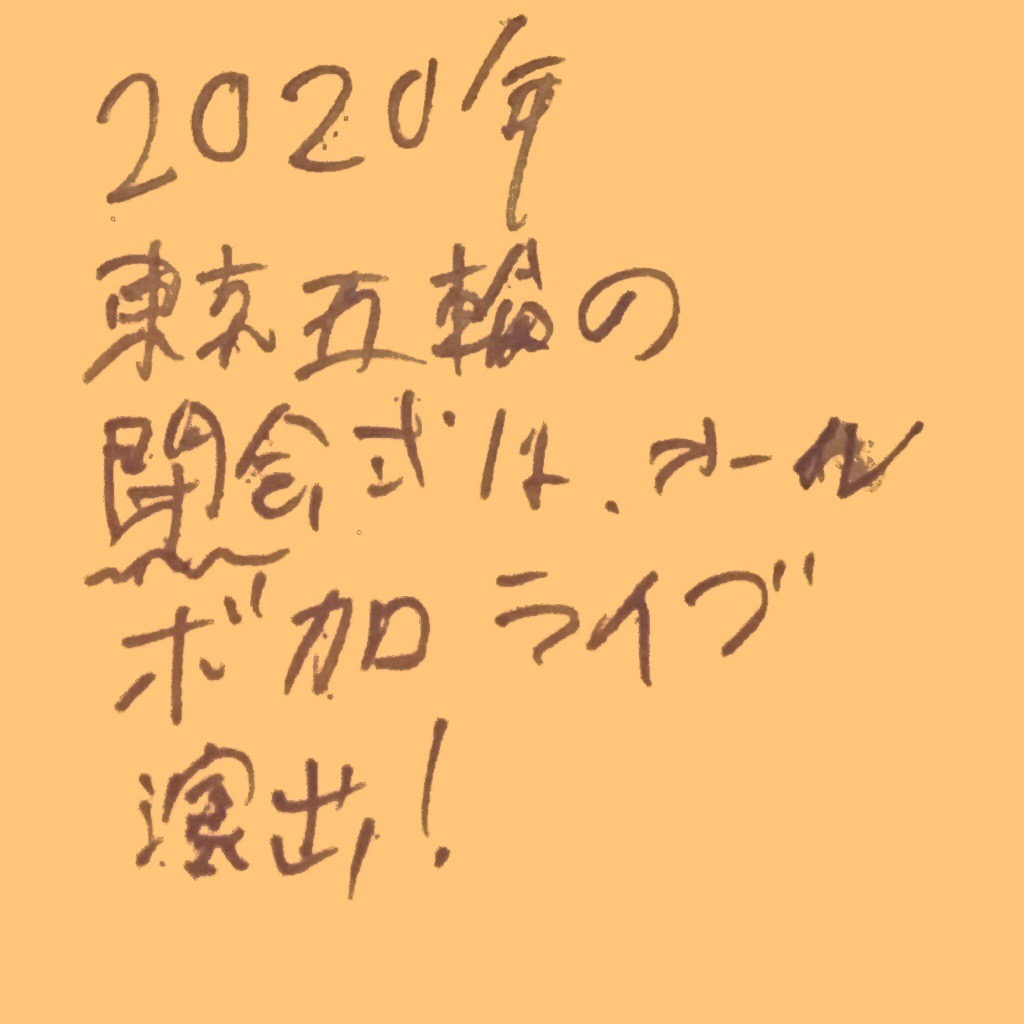 2020年
東京五輪の
開会式は、オール
ボカロライブ
演出!